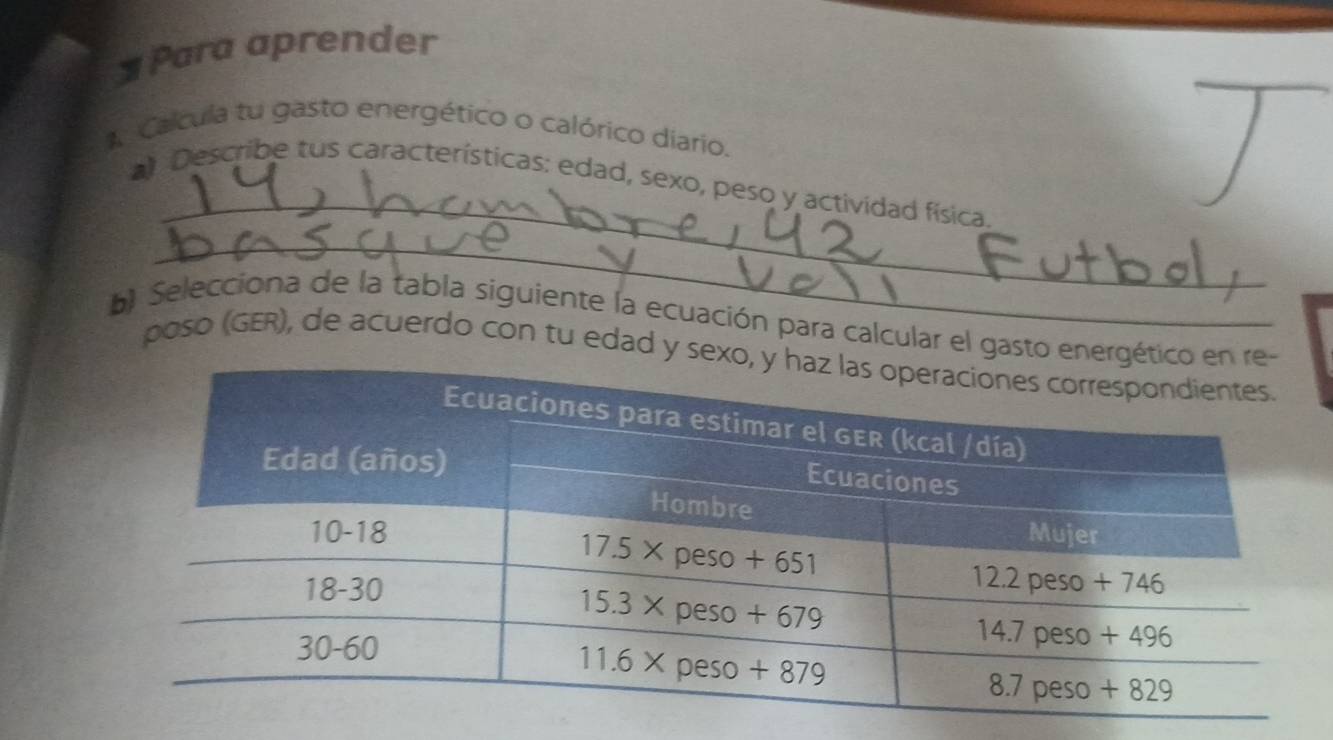 Para aprender
J
1. Calcula tu gasto energético o calórico diario.
a) Describe tus características: edad, sexo, peso y actividad física.
14, hombre, 42 Futbol,
basque y voli
b) Selecciona de la tabla siguiente la ecuación para calcular el gasto energético en re-
poso (GER), de acuerdo con tu edad y sexo, y haz las operaciones correspondientes.
Ecuaciones para estimar el GER (kcal /día)
Edad (años) Ecuaciones
Hombre Mujer
10-18 17.5 × peso + 651 12.2 peso + 746
18-30 15.3 × peso + 679 14.7 peso + 496
30-60 11.6 × peso + 879 8.7 peso + 829